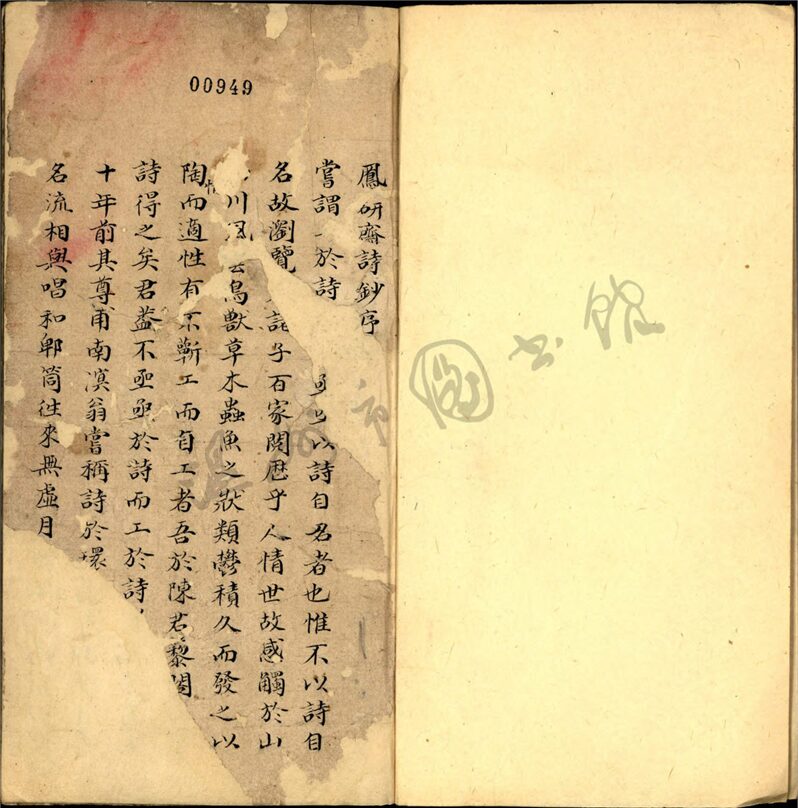 00949
鳳研齋詩鈔序
嘗謂 於詩 以詩自名者也惟不以詩自
名故瀏覽 諸子百家閱歷乎人情世故感觸於山
川風雲鳥獸草木蟲魚之狀類鬱積久而發之以
陶情而適性有不蘄工而自工者吾於陳君黎閣
詩得之矣君蓋不亟亟於詩而工於詩
十年前其尊甫南溟翁嘗稱詩於環
名流相與唱和郫筒往來無虛月
圖書館